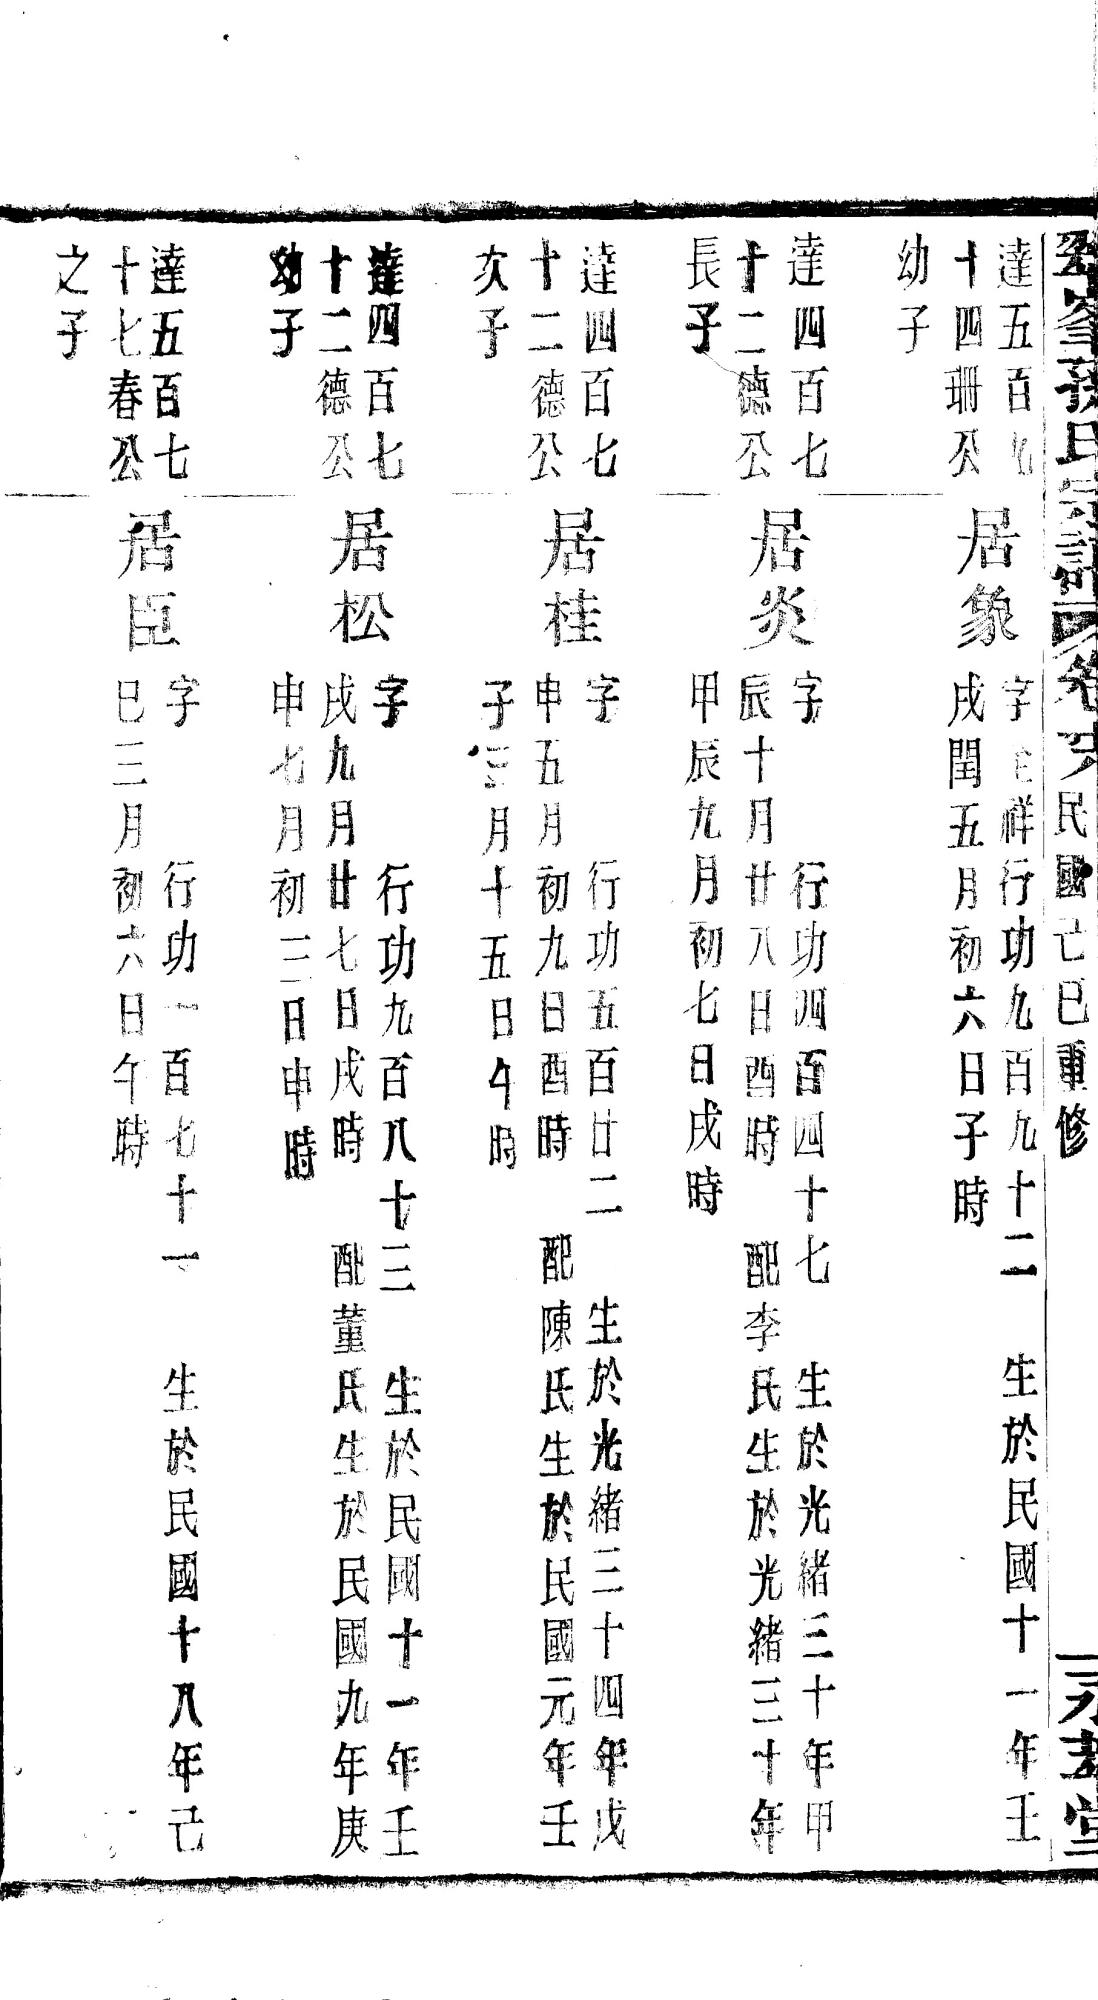 孫氏宗譜
卷
民國亡巳重修
堂
達五百九
十四珊公
幼子
居象
字 祥行功九百九十二 生於民國十一年壬
戌閏五月初六日子時
達四百七
十二德公
長子
居炎
字 行功四百四十七 生於光緒三十年甲
辰十月廿八日酉時 配李氏生於光緒三十年
甲辰九月初七日戌時
達四百七
十二德公
次子
居桂
字 行功五百廿二 生於光緒三十四年戊
申五月初九日酉時 配陳氏生於民國元年壬
子三月十五日午時
達四百七
十二德公
幼子
居松
字 行功九百八十三 生於民國十一年壬
戌九月廿七日戌時 配董氏生於民國九年庚
申七月初三日申時
達五百七
十七春公
之子
居臣
字 行功一百七十一 生於民國十八年己
巳三月初六日午時